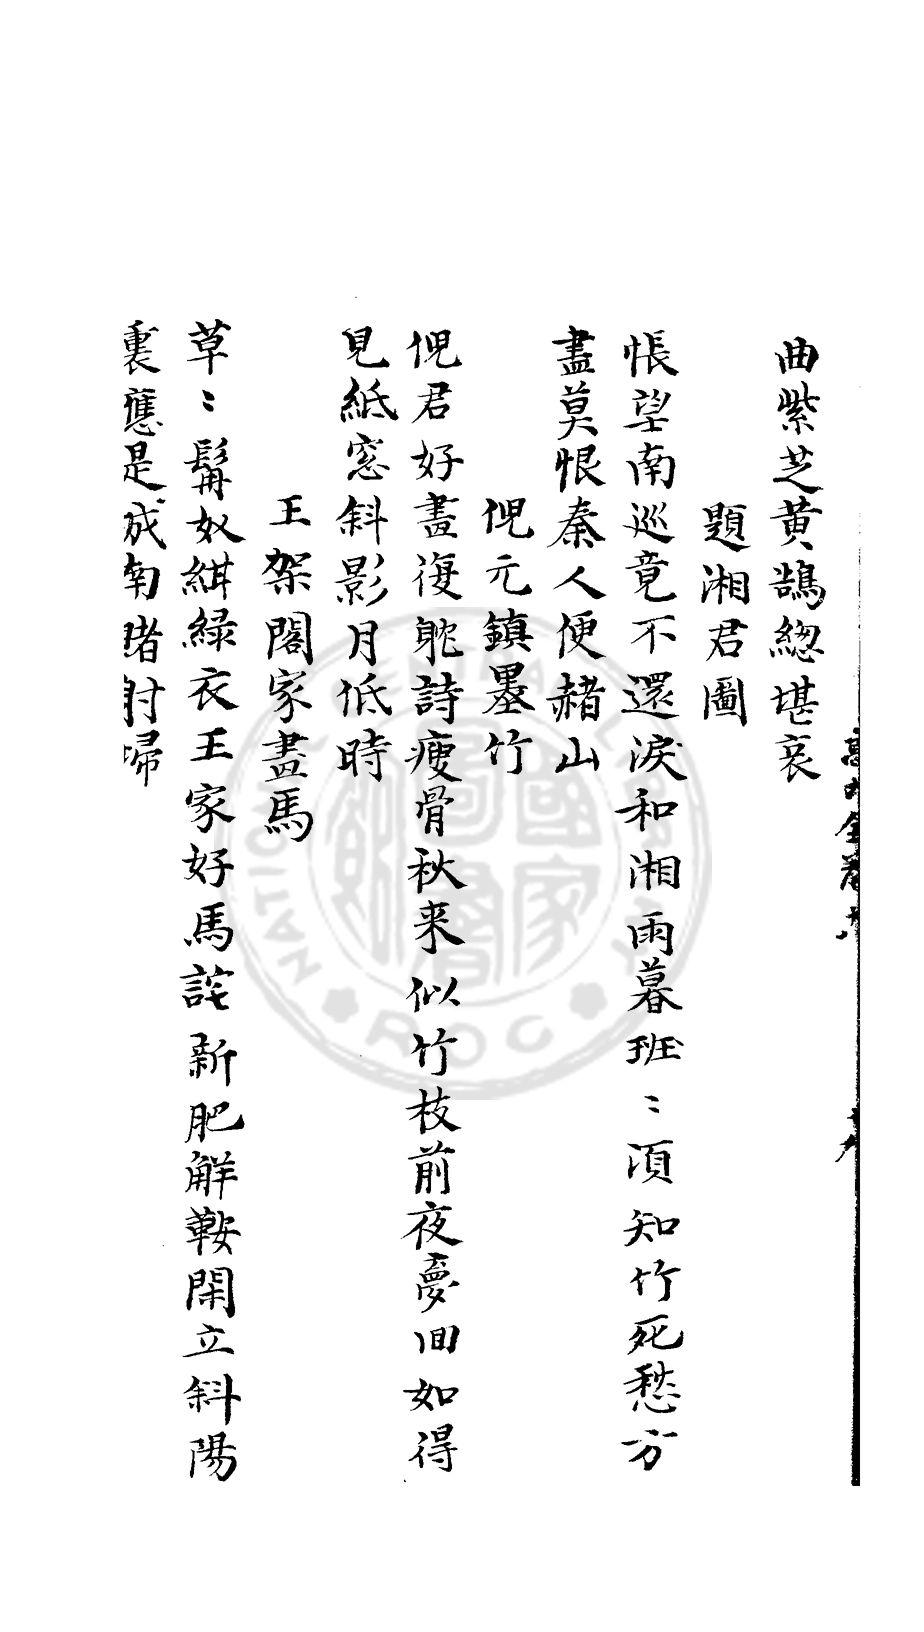 曲紫芝黄鵠緫堪哀
題湘君圖
悵望南巡竟不還淚和湘雨暮班〻湏知竹死愁方
盡莫恨秦人便赭山
倪元鎮墨竹
倪君好畫復躭詩瘦骨秋来似竹枝前夜夢回如得
見紙窓斜影月低時
王架閣家畫馬
草〻髯奴緑衣王家好馬詫新肥解鞍閑立斜陽
裏應是城南賭射歸
NATIONAL CENTRAL LIBRARY
ROC
國家圖書館